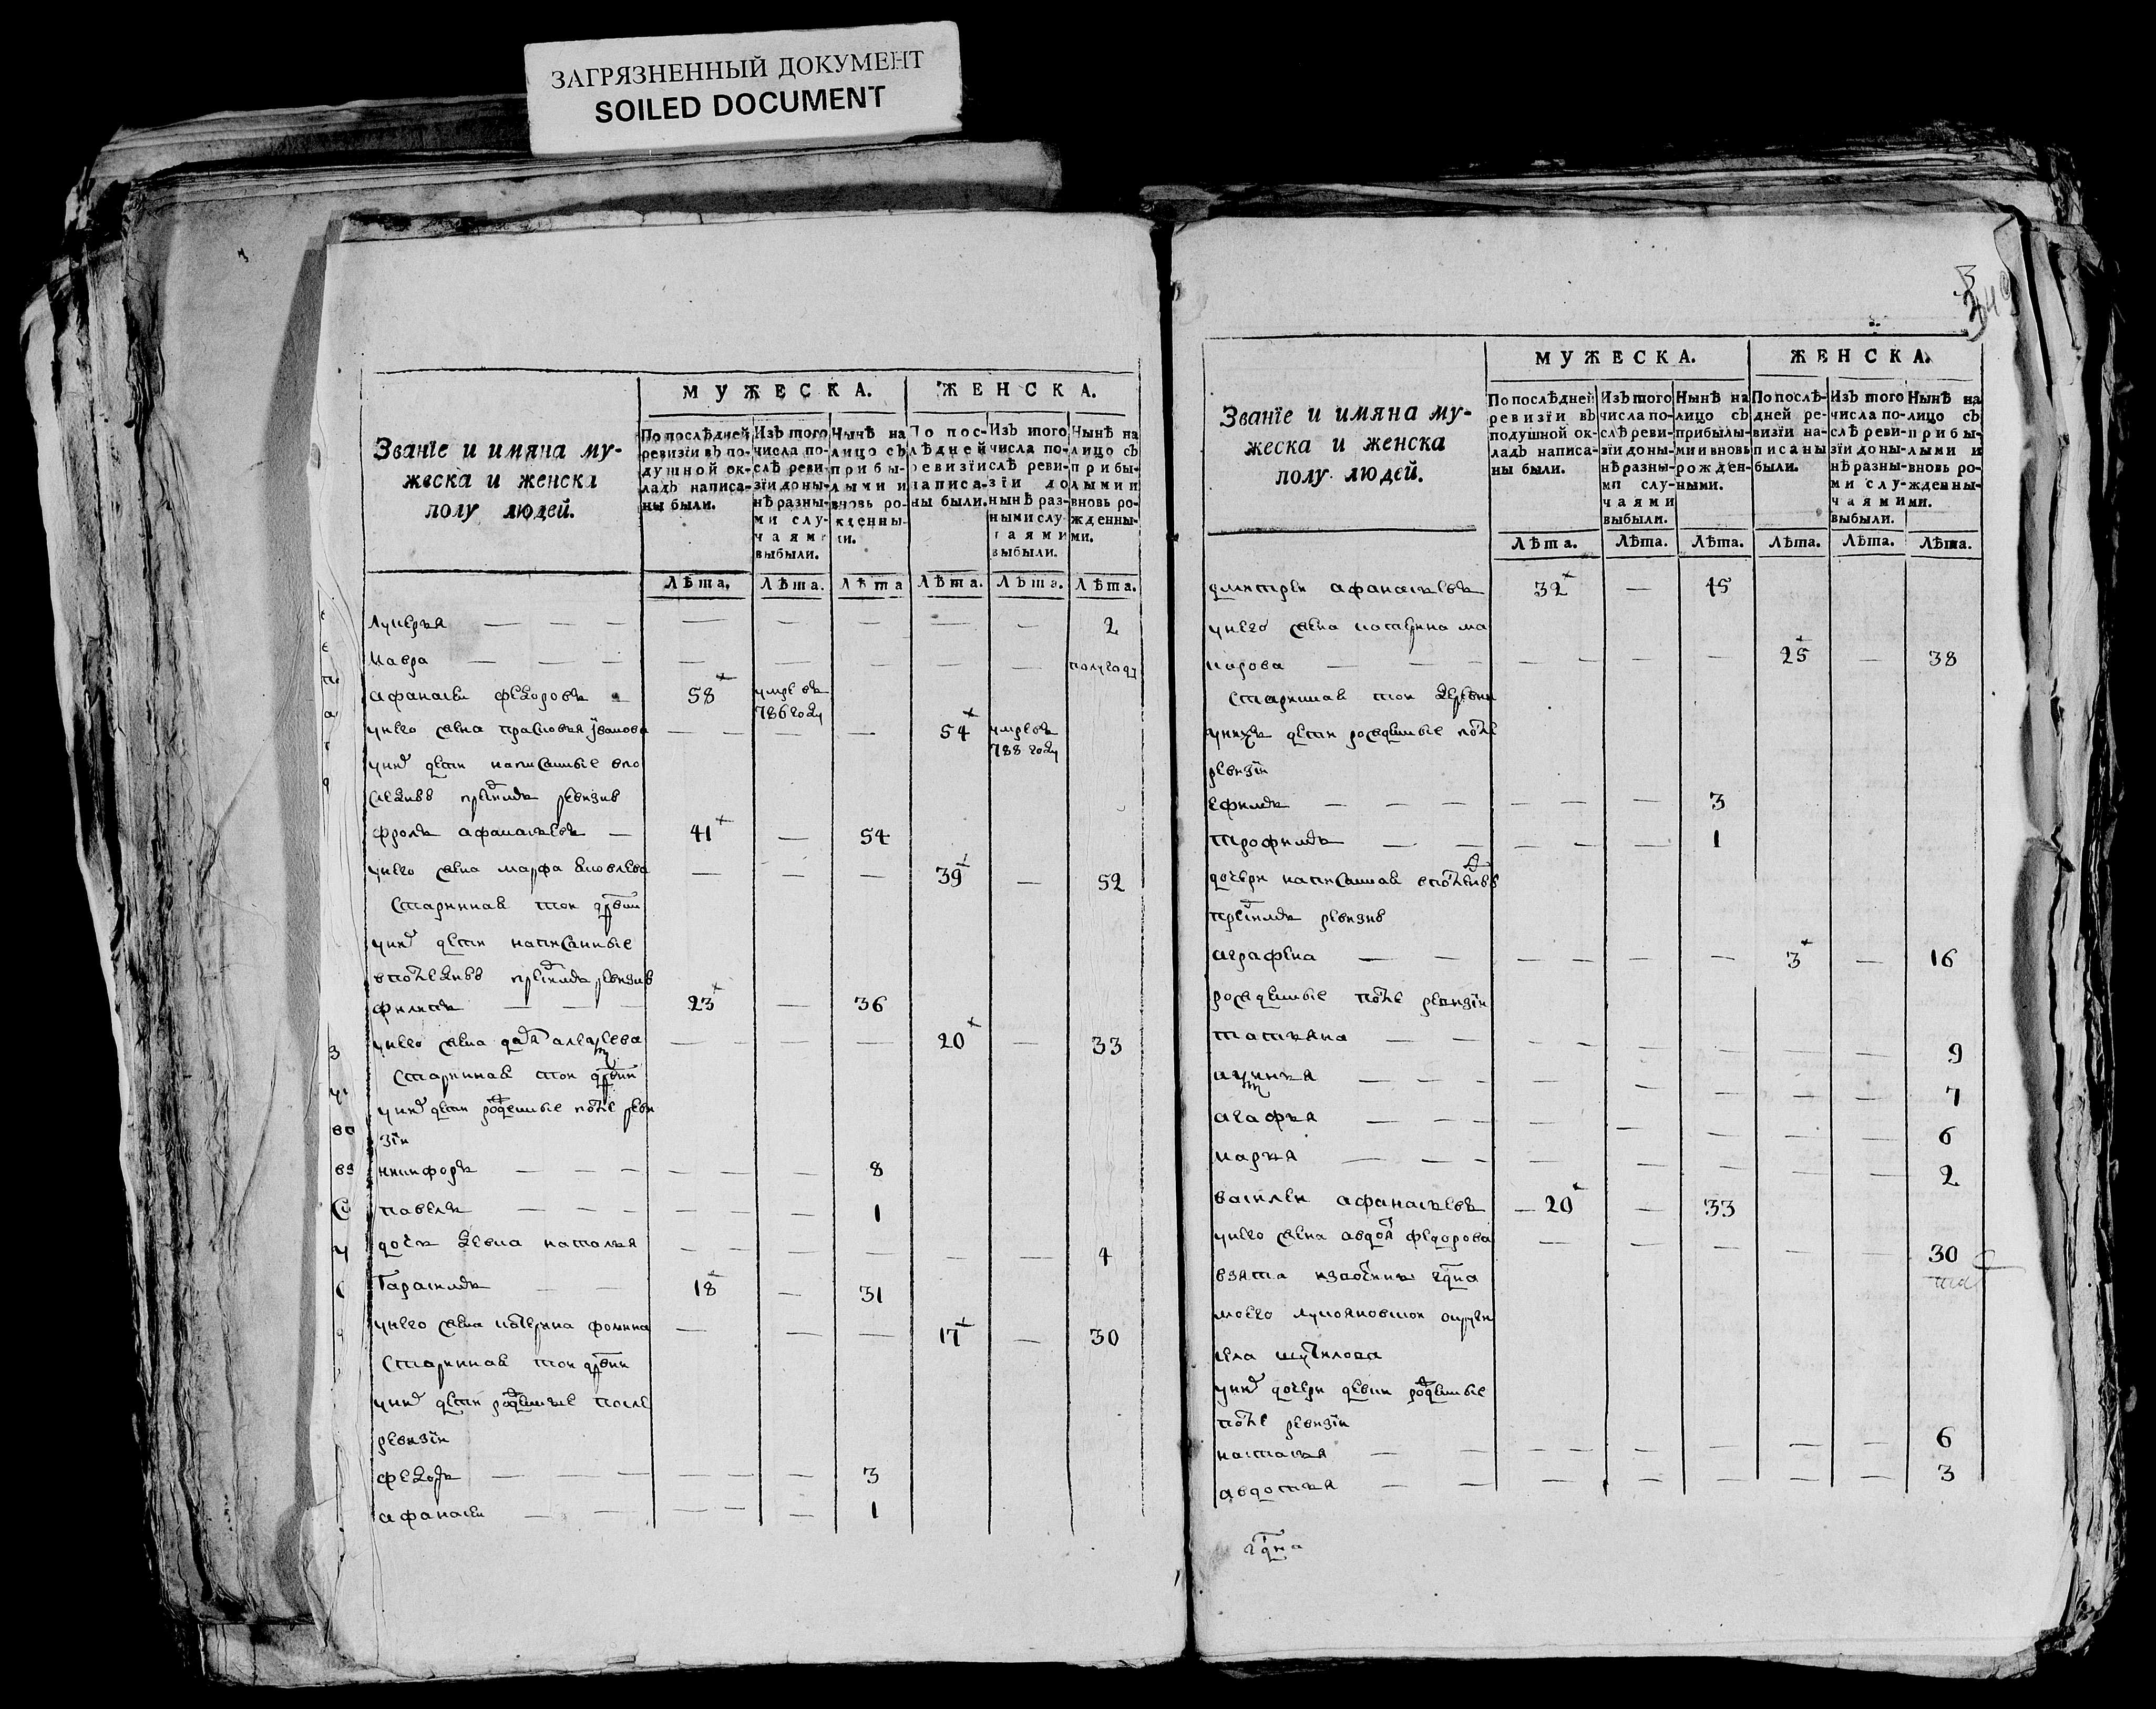 ЗАГРЯЗНЕННЫЙ ДОКУМЕНТ
SOILED DOCUMENT
Званїе и имяна му-
жеска и женска
полу людей.
МУЖЕСКА.
ЖЕНСКА.
По послѣдней ревизїи въ по-душной ок-ладъ написа-ны были.
Изъ того числа по-слѣ реви-зїи до ны-нѣ разны-ми слу-чаями выбыли.
Нынѣ на лицо съ прибы-лыми и вновь ро-жденны-ми.
По пос-лѣдней ревизїи написа-ны были.
Изъ того числа по-слѣ реви-зїи до нынѣ раз-ными слу-чаями выбыли.
Нынѣ на лицо съ прибы-лыми и вновь ро-жденны-ми.
Лѣта. Лѣта. Лѣта Лѣта. Лѣта. Лѣта.
лукерья — — — — — — — — 2
мавра — — — — — — — — полугоду
афанасеи федоровъ 58 умре въ 786 году
унево жена прасковья їванова — — — — 54 умре въ 788 году
уних дети написанные впо
следнюю пред симъ ревизию
фролъ афанасьевъ — 41 — 54
унево жена марфа яковлева — — — 39 — 52
старинная тои дрвни
уних дети написанные
впоследнюю пред симъ ревизию
филипъ — — — 23 — 36
унево жена дарья — — — — 20 — 33
старинная тои дрвни
уних дети рожденные после реви
зїи
никифоръ — — — — — — 8
павелъ — — — — — — 1
дочь девка наталья — — — — — 4
Гарасимъ — — 18 — 31
унево жена катерина фомина — — — 17 — 30
старинная тои дрвни
уних дети рожденные после
ревизїи
федоръ — — — — — — 3
афанасеи — — — — — 1
Званїе и имяна му-
жеска и женска
полу людей.
МУЖЕСКА.
ЖЕНСКА.
По послѣдней ревизїи въ подушной ок-ладъ написа-ны были.
Изъ того числа по-слѣ реви-зїи до ны-нѣ разны-ми слу-чаями выбыли.
Нынѣ на лицо съ прибылы-ми и вновь рожден-ными.
По послѣ-дней ре-визїи на-писаны были.
Изъ того числа по-слѣ реви-зїи до ны-нѣ разны-ми слу-чаями выбыли.
Нынѣ на лицо съ прибы-лыми и вновь ро-жденны-ми.
Лѣта. Лѣта. Лѣта. Лѣта. Лѣта. Лѣта.
дмитреи афанасьевъ 32 — 45
унево жена катерина ма
карова — — — — — — — 25 — 38
старинная тои деревни
унихъ дети рожденные после
ревизїи
ефимъ — — — — — — 3
трофимъ — — — — — 1
дочери написанная впоследнюю
пред симъ ревизию
аграфена — — — — — — 3 — 16
рожденные после ревизїи
татьяна — — — — — — — — 9
— — — — — — — — 7
агафья — — — — — — — — 6
марья — — — — — — — — 2
василеи афанасьевъ — 20 — 33
унево жена авдотья федорова — — — — — 30
взята
моего лукояновскои округи
села шутилова
уних дочери девки рожденные
после ревизїи
настасья — — — — — — — — 6
авдотья — — — — — — — — 3